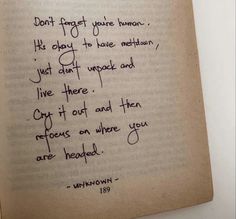 Don't forget you're human.
It's okay to have meltdown,
just don't unpack and
live there.
Cry it out and then
refocus on where you
are headed.
- UNKNOWN -
189